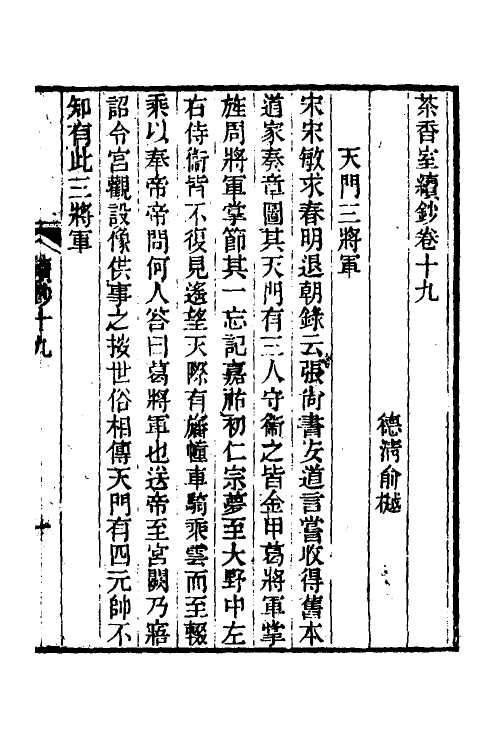 茶香室續鈔卷十九
德淸俞樾
天門三將軍
宋宋敏求春明退朝錄云張尙書安道言嘗收得舊本
道家奏章圖其天門有三人守衞之皆金甲葛將軍掌
旌周將軍掌節其一忘記嘉祐初仁宗夢至大野中左
右侍衞皆不復見遙望天際有旛幢車騎乘雲而至輟
乘以奉帝帝問何人答曰葛將軍也送帝至宮闕乃寤
詔令宮觀設像供事之按世俗相傳天門有四元帥不
知有此三將軍
續鈔十九